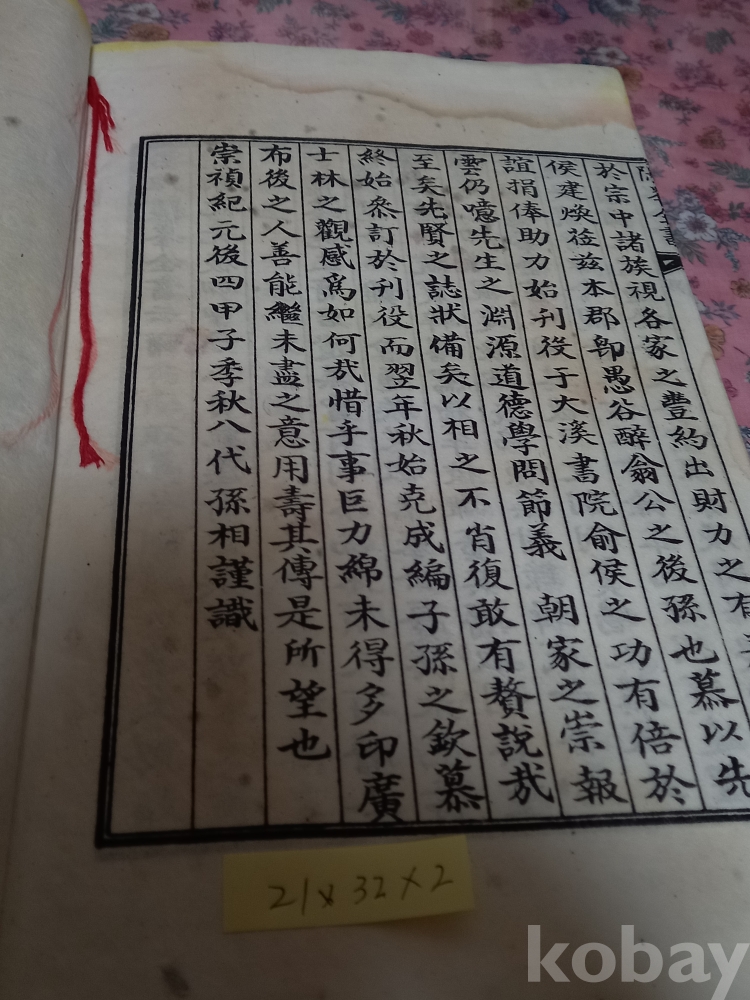 全書
於宗中諸族視各家之豊約出財力之有
侯建煥莅玆本郡卽愚谷醉翁公之後孫也慕以先
誼捐俸助力始刊役于大溪書院俞侯之功有倍於
雲仍噫先生之淵源道德學問節義 朝家之崇報
至矣先賢之誌狀備矣以相之不肖復敢有贅說㢤
終始叅訂於刊役而翌年秋始克成編子孫之欽慕
士林之觀感爲如何㢤惜乎事巨力綿未得多印廣
布後之人善能繼未盡之意用壽其傳是所望也
崇禎紀元後四甲子季秋八代孫相謹識
21x32x2
kobay